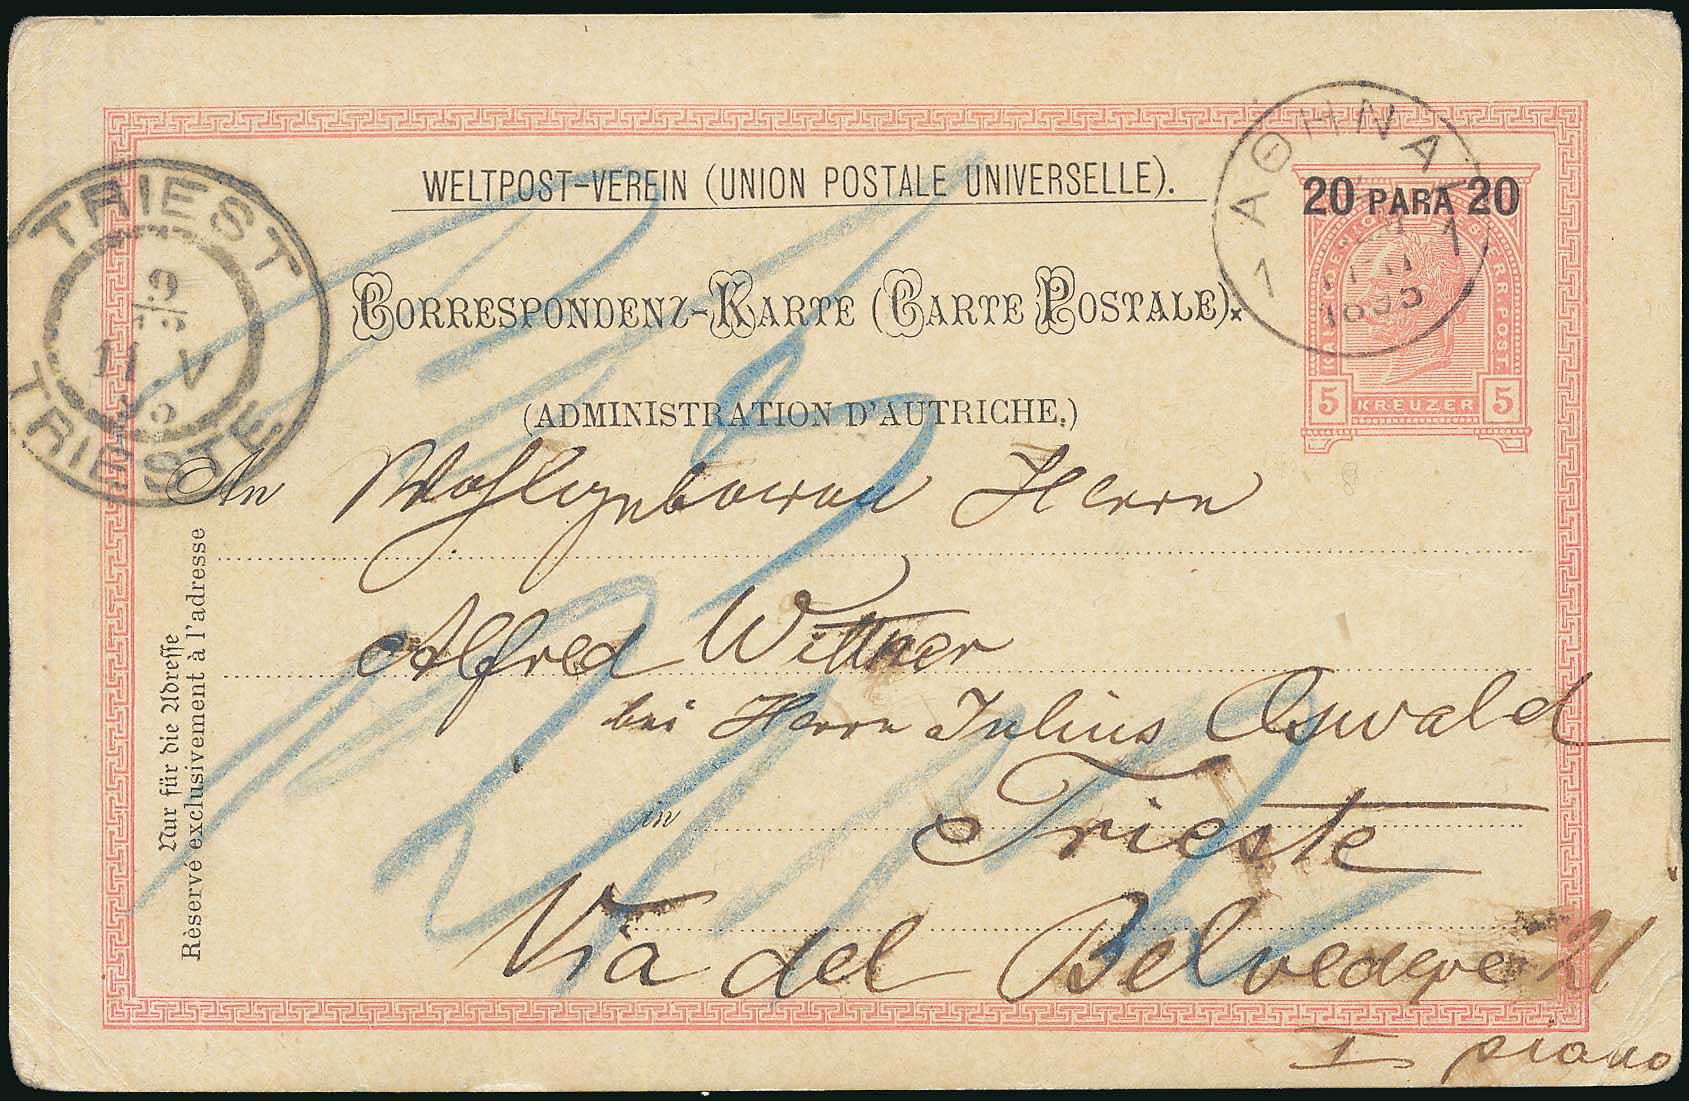 WELTPOST-VEREIN (UNION POSTALE UNIVERSELLE).
ΑΘΗΝΑΙ
1 1
1895
20 PARA 20
5 KREUZER 5
TRIEST
9
11 V
95
TRIESTE
CORRESPONDENZ-KARTE (CARTE POSTALE).
(ADMINISTRATION D'AUTRICHE.)
An Wohlgeboren Herrn
Alfred Wittner
bei Herrn Julius Oswald
in Trieste
Via del Belvedere
I piano
Nur für die Adresse
Rèservé exclusivement à l'adresse